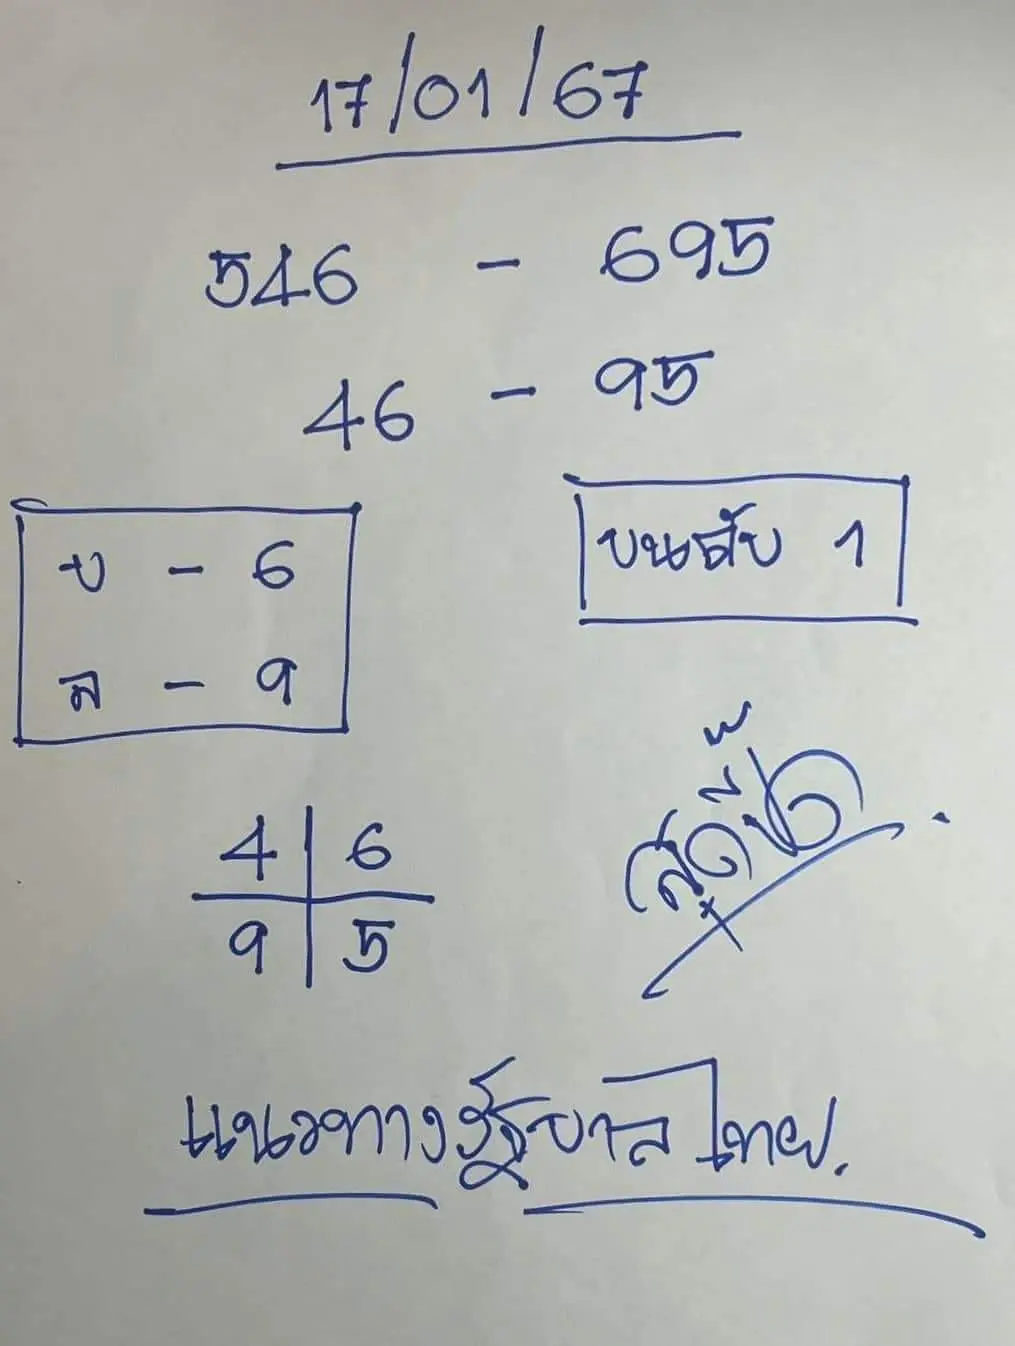 17/01/67
546 - 695
46 - 95
บ - 6
ล - 9
บนดับ 1
4 6
9 5
แนวทางรัฐบาลไทย.